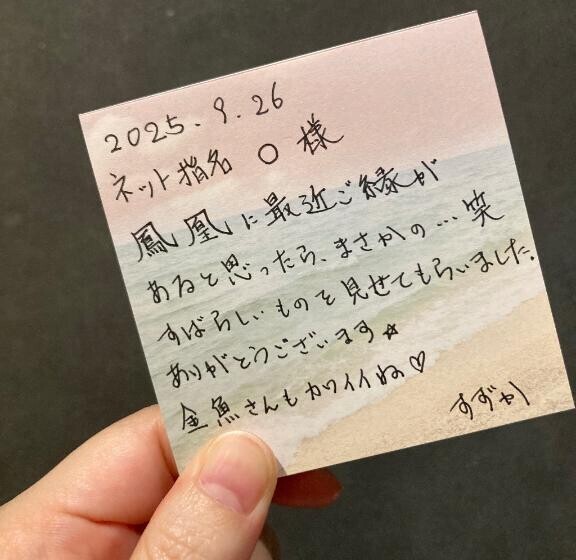 2025.9.26
ネット指名 〇 様
鳳凰に最近ご縁が
あると思ったら、まさかの…笑
すばらしいものを見せてもらいました。
ありがとうございます☆
金魚さんもカワイイね♡
すずか